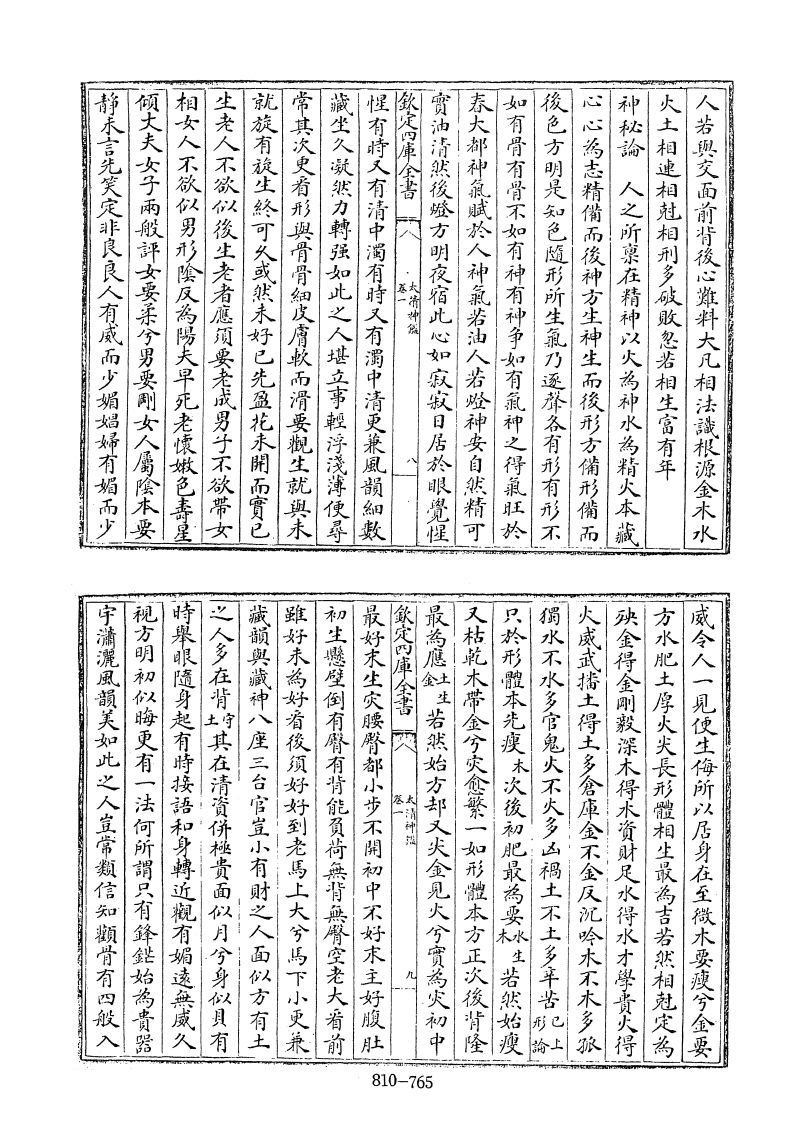 人若與交面前背後心難料大凡相法識根源金木水
火土相連相尅相刑多破敗忽若相生富有年
神秘論　人之所禀在精神以火為神水為精火本藏
心心為志精備而後神方生神生而後形方備形備而
後色方明是知色隨形所生氣乃逐聲各有形有形不
如有骨有骨不如有神有神争如有氣神之得氣旺於
春大都神氣賦於人神氣若油人若燈神安自然精可
實油清然後燈方明夜宿此心如寂寂日居於眼覺惺
欽定四庫全書　太清神鑑 卷一　八
惺有時又有清中濁有時又有濁中清更兼風韻細數
藏坐久凝然力轉强如此之人堪立事輕浮淺薄便尋
常其次更看形與骨骨細皮膚軟而滑要觀生就與未
就旋有旋生終可久或然未好已先盈花未開而實已
生老人不欲似後生老者應須要老成男子不欲帶女
相女人不欲似男形陰反為陽夫早死老懷嫩色壽星
傾大夫女子兩般評女要柔兮男要剛女人屬陰本要
静未言先笑定非良良人有威而少媚娼婦有媚而少
威令人一見便生侮所以居身在至微木要瘦兮金要
方水肥土厚火尖長形體相生最為吉若然相尅定為
殃金得金剛毅深木得水資財足水得水才學貴火得
火威武播土得土多倉庫金不金反沉吟木不木多孤
獨水不水多官鬼火不火多凶禍土不土多辛苦已上形論
只於形體本先瘦木次後初肥最為要水生木若然始瘦
又枯乾木帶金兮災愈繁一如形體本方正次後背隆
最為應土生金若然始方却又尖金見火兮實為災初中
欽定四庫全書　太清神鑑 卷一　九
最好末生災腰臀都小步不開初中不好末主好腹肚
初生懸壁倒有臀有背能負荷無背無臀空老大看前
雖好未為好看後須好好到老馬上大兮馬下小更兼
藏韻與藏神八座三台官豈小有財之人面似方有土
之人多在背守土其在清資併極貴面似月兮身似貝有
時舉眼隨身起有時接語和身轉近觀有媚遠無威久
視方明初似晦更有一法何所謂只有鋒鋩始為貴器
宇瀟灑風韻美如此之人豈常類信知顴骨有四般入
810-765